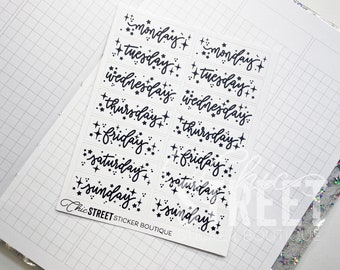 monday monday
tuesday tuesday
wednesday wednesday
thursday thursday
friday friday
saturday saturday
sunday sunday
Chic STREET STICKER BOUTIQUE
STREET